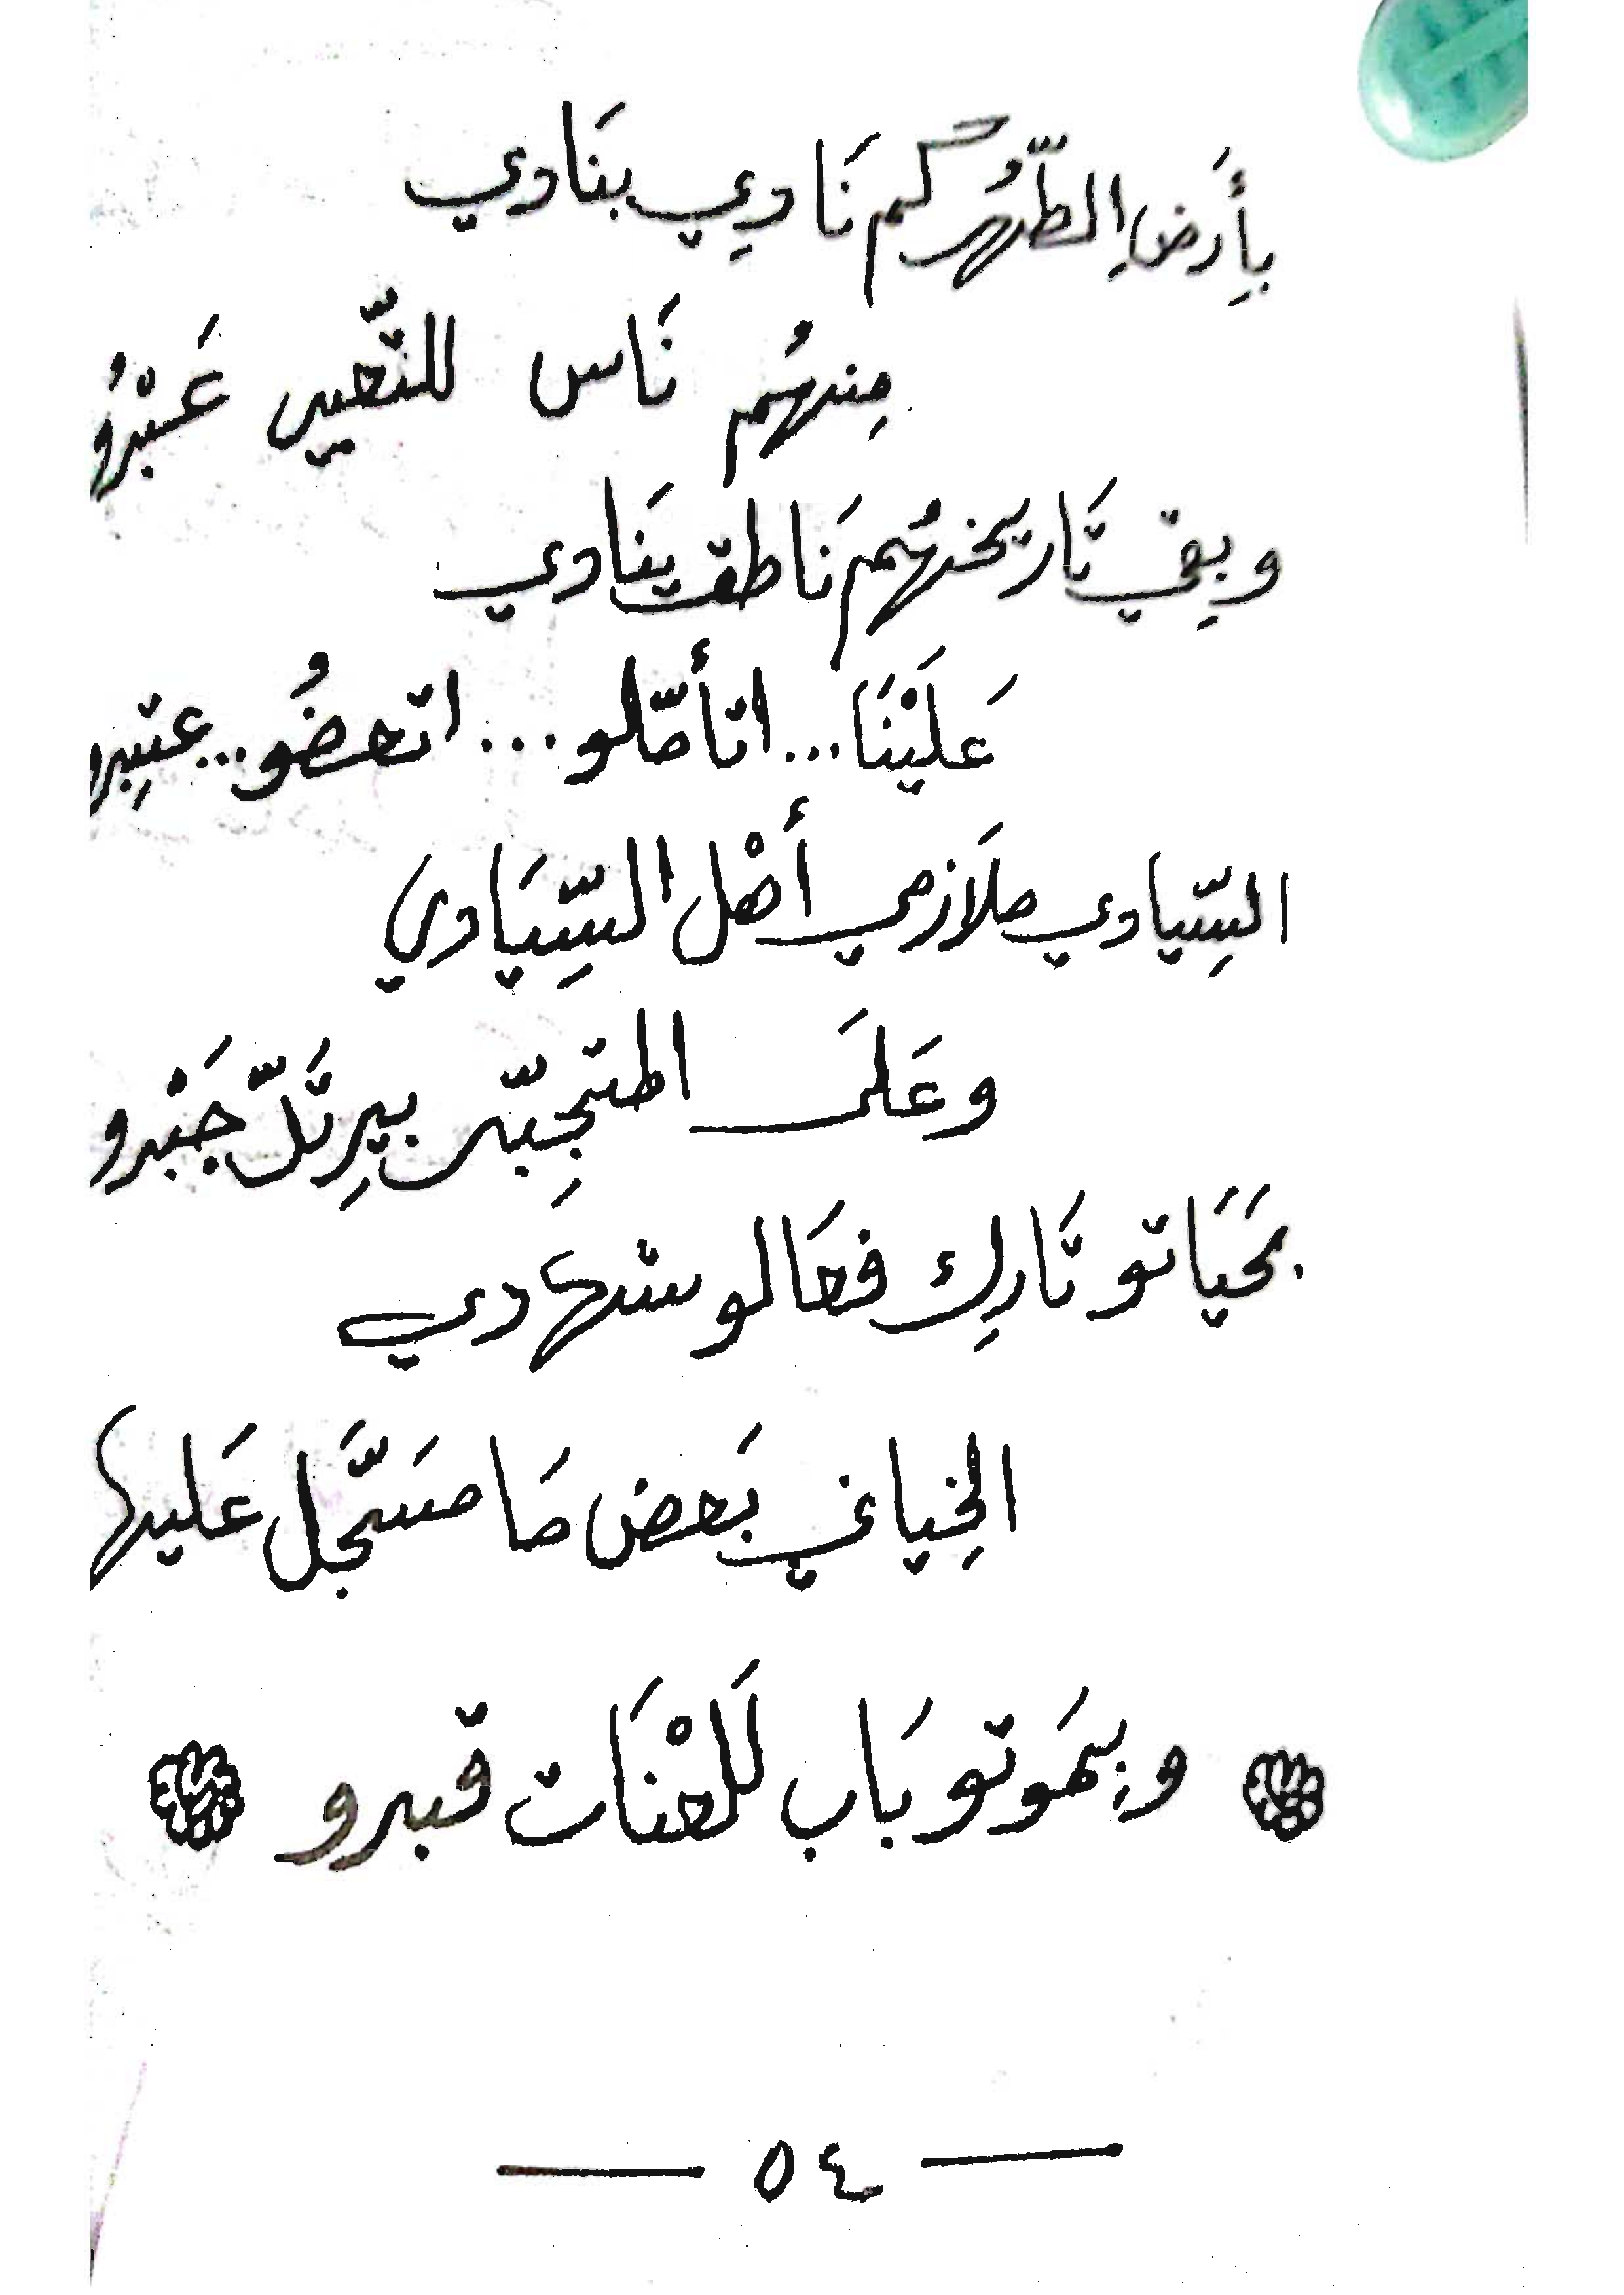 بِأرَضِ الطّهُر كم نَادِي بنَادي
مِنهُم نَاس للتّعيس عَبْرُو
وبِقي تَاريخهُم نَاطق ينَادي
عَلَيْنَا... اتأمّلو... اتعضُو.. عتبِرو
السِّيادي ملَازمي أهْل السِّيَادي
وعَلى المتجِبّر بيرِتَدّ جَبْرو
بحَيَاتو تَارِك فعَالو شهادي
الخِياني بَعض مَا مسَجَّل عَليها
وبمَوتو بَاب لَلعْنَات قبرو
— ٥٤ —